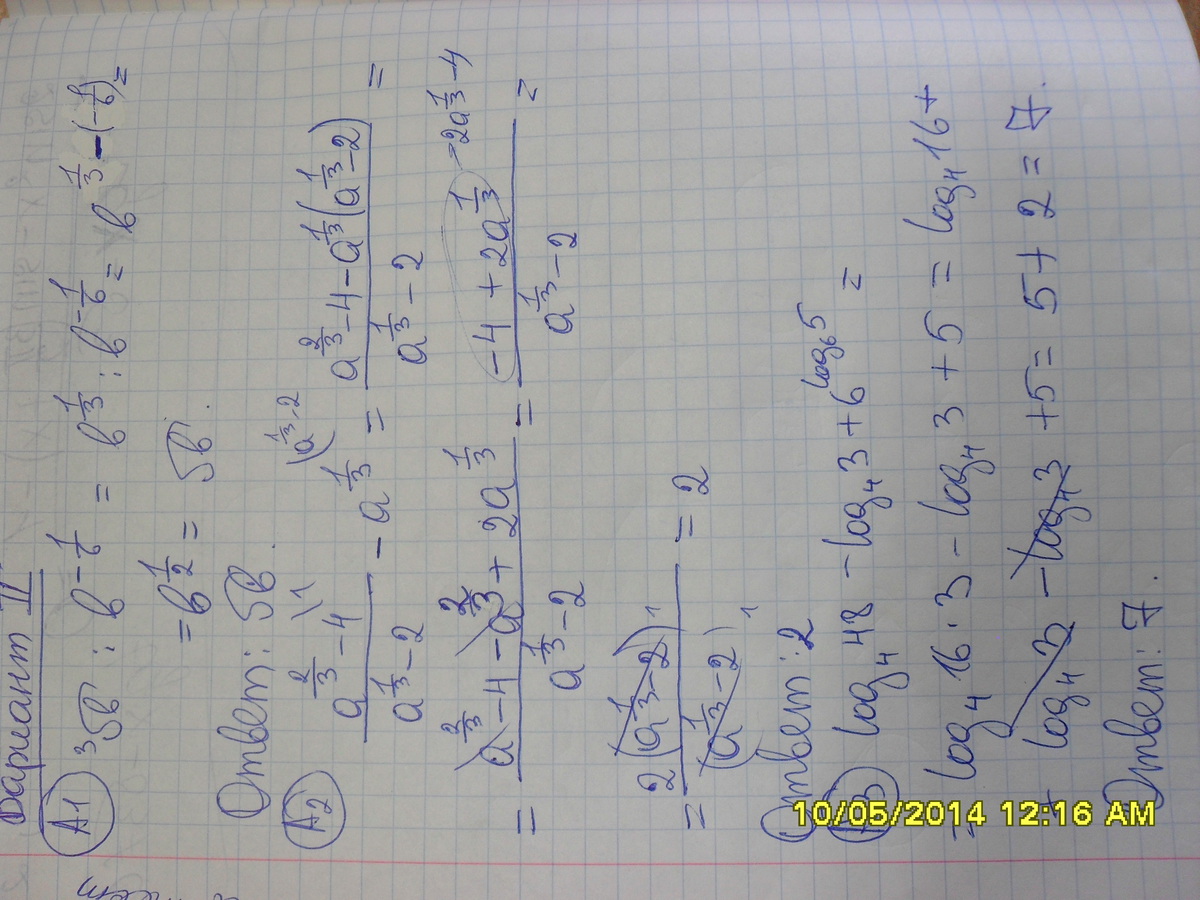 Вариант II
A1 ³√b : b^(-1/6) = b^(1/3) : b^(-1/6) = b^(1/3-(-1/6)) =
= b^(1/2) = √b.
Ответ: √b.
A2 (a^(2/3)-4)/(a^(1/3)-2) \1 - a^(1/3) \(a^(1/3)-2 = (a^(2/3)-4-a^(1/3)(a^(1/3)-2))/(a^(1/3)-2) =
= (a^(2/3)-4-a^(2/3)+2a^(1/3))/(a^(1/3)-2) = (-4+2a^(1/3) = 2a^(1/3)-4)/(a^(1/3)-2) =
= 2(a^(1/3)-2)¹/(a^(1/3)-2)¹ = 2
Ответ: 2
A3 log₄48 - log₄3 + 6^(log₆5) =
= log₄16·3 - log₄3 + 5 = log₄16 +
+ log₄3 - log₄3 + 5 = 5 + 2 = 7.
Ответ: 7.
10/05/2014 12:16 AM